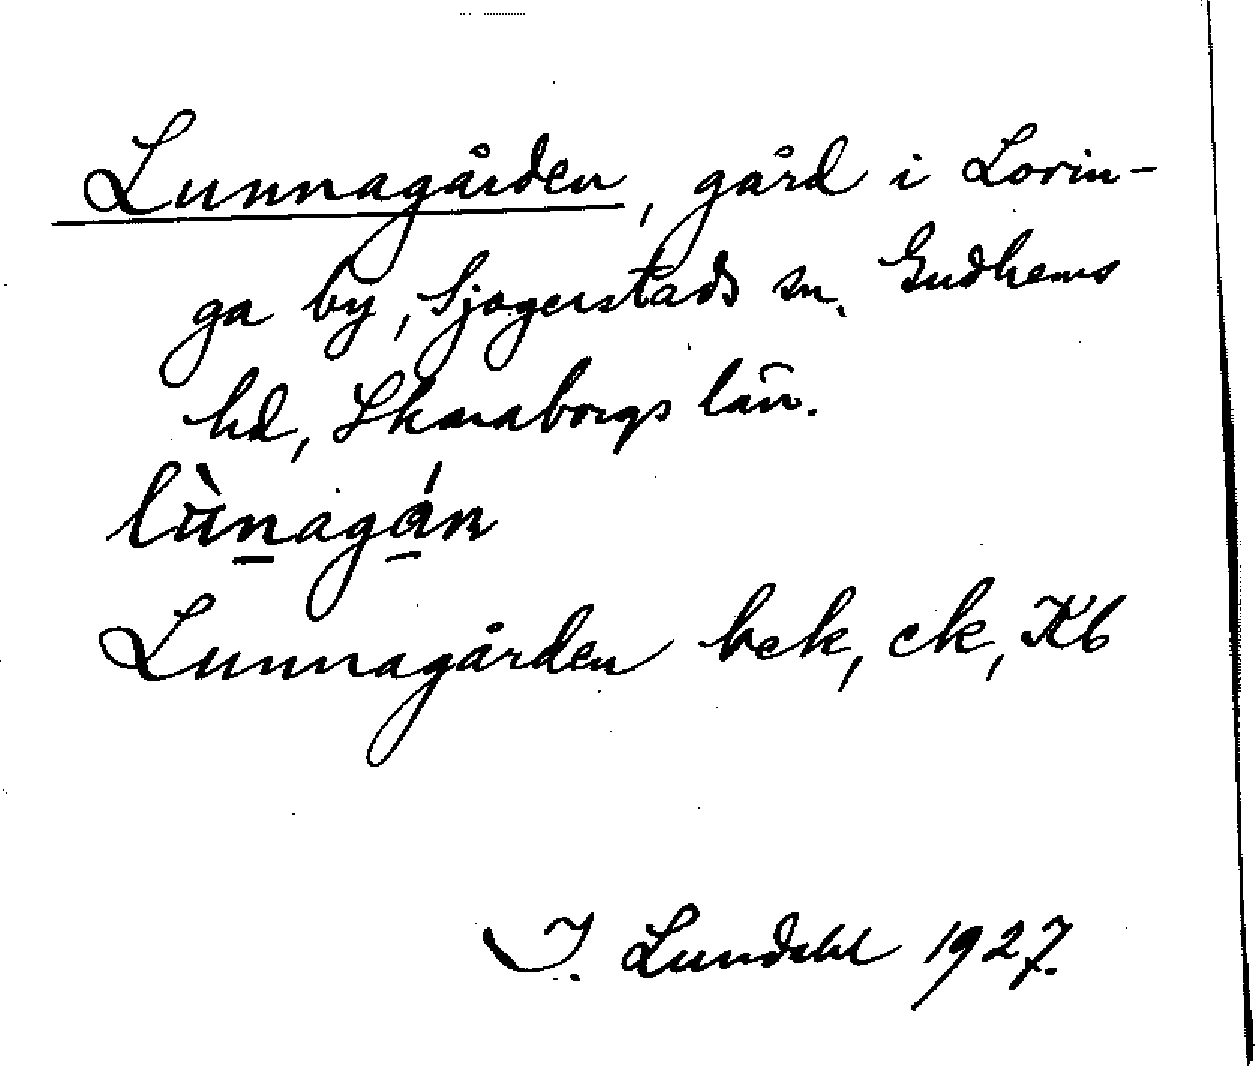 Lunnagården, gård i Lovin-
ga by, Sjogerstads sn. Gudhems
hd, Skaraborgs län.
lùnagán
Lunnagården bek, ek, Kb
I. Lundahl 1927.